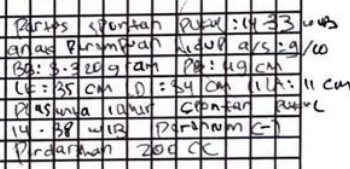 Partus spontan pukul : 14.33 WIB
anak Perempuan hidup a/s : 9/10
BB : 3.320 gram PB : 49 cm
LK : 35 cm LD : 34 cm LILA : 11 cm
Plasenta lahir spontan pukul
14.38 WIB Perineum (-)
Perdarahan 200 cc